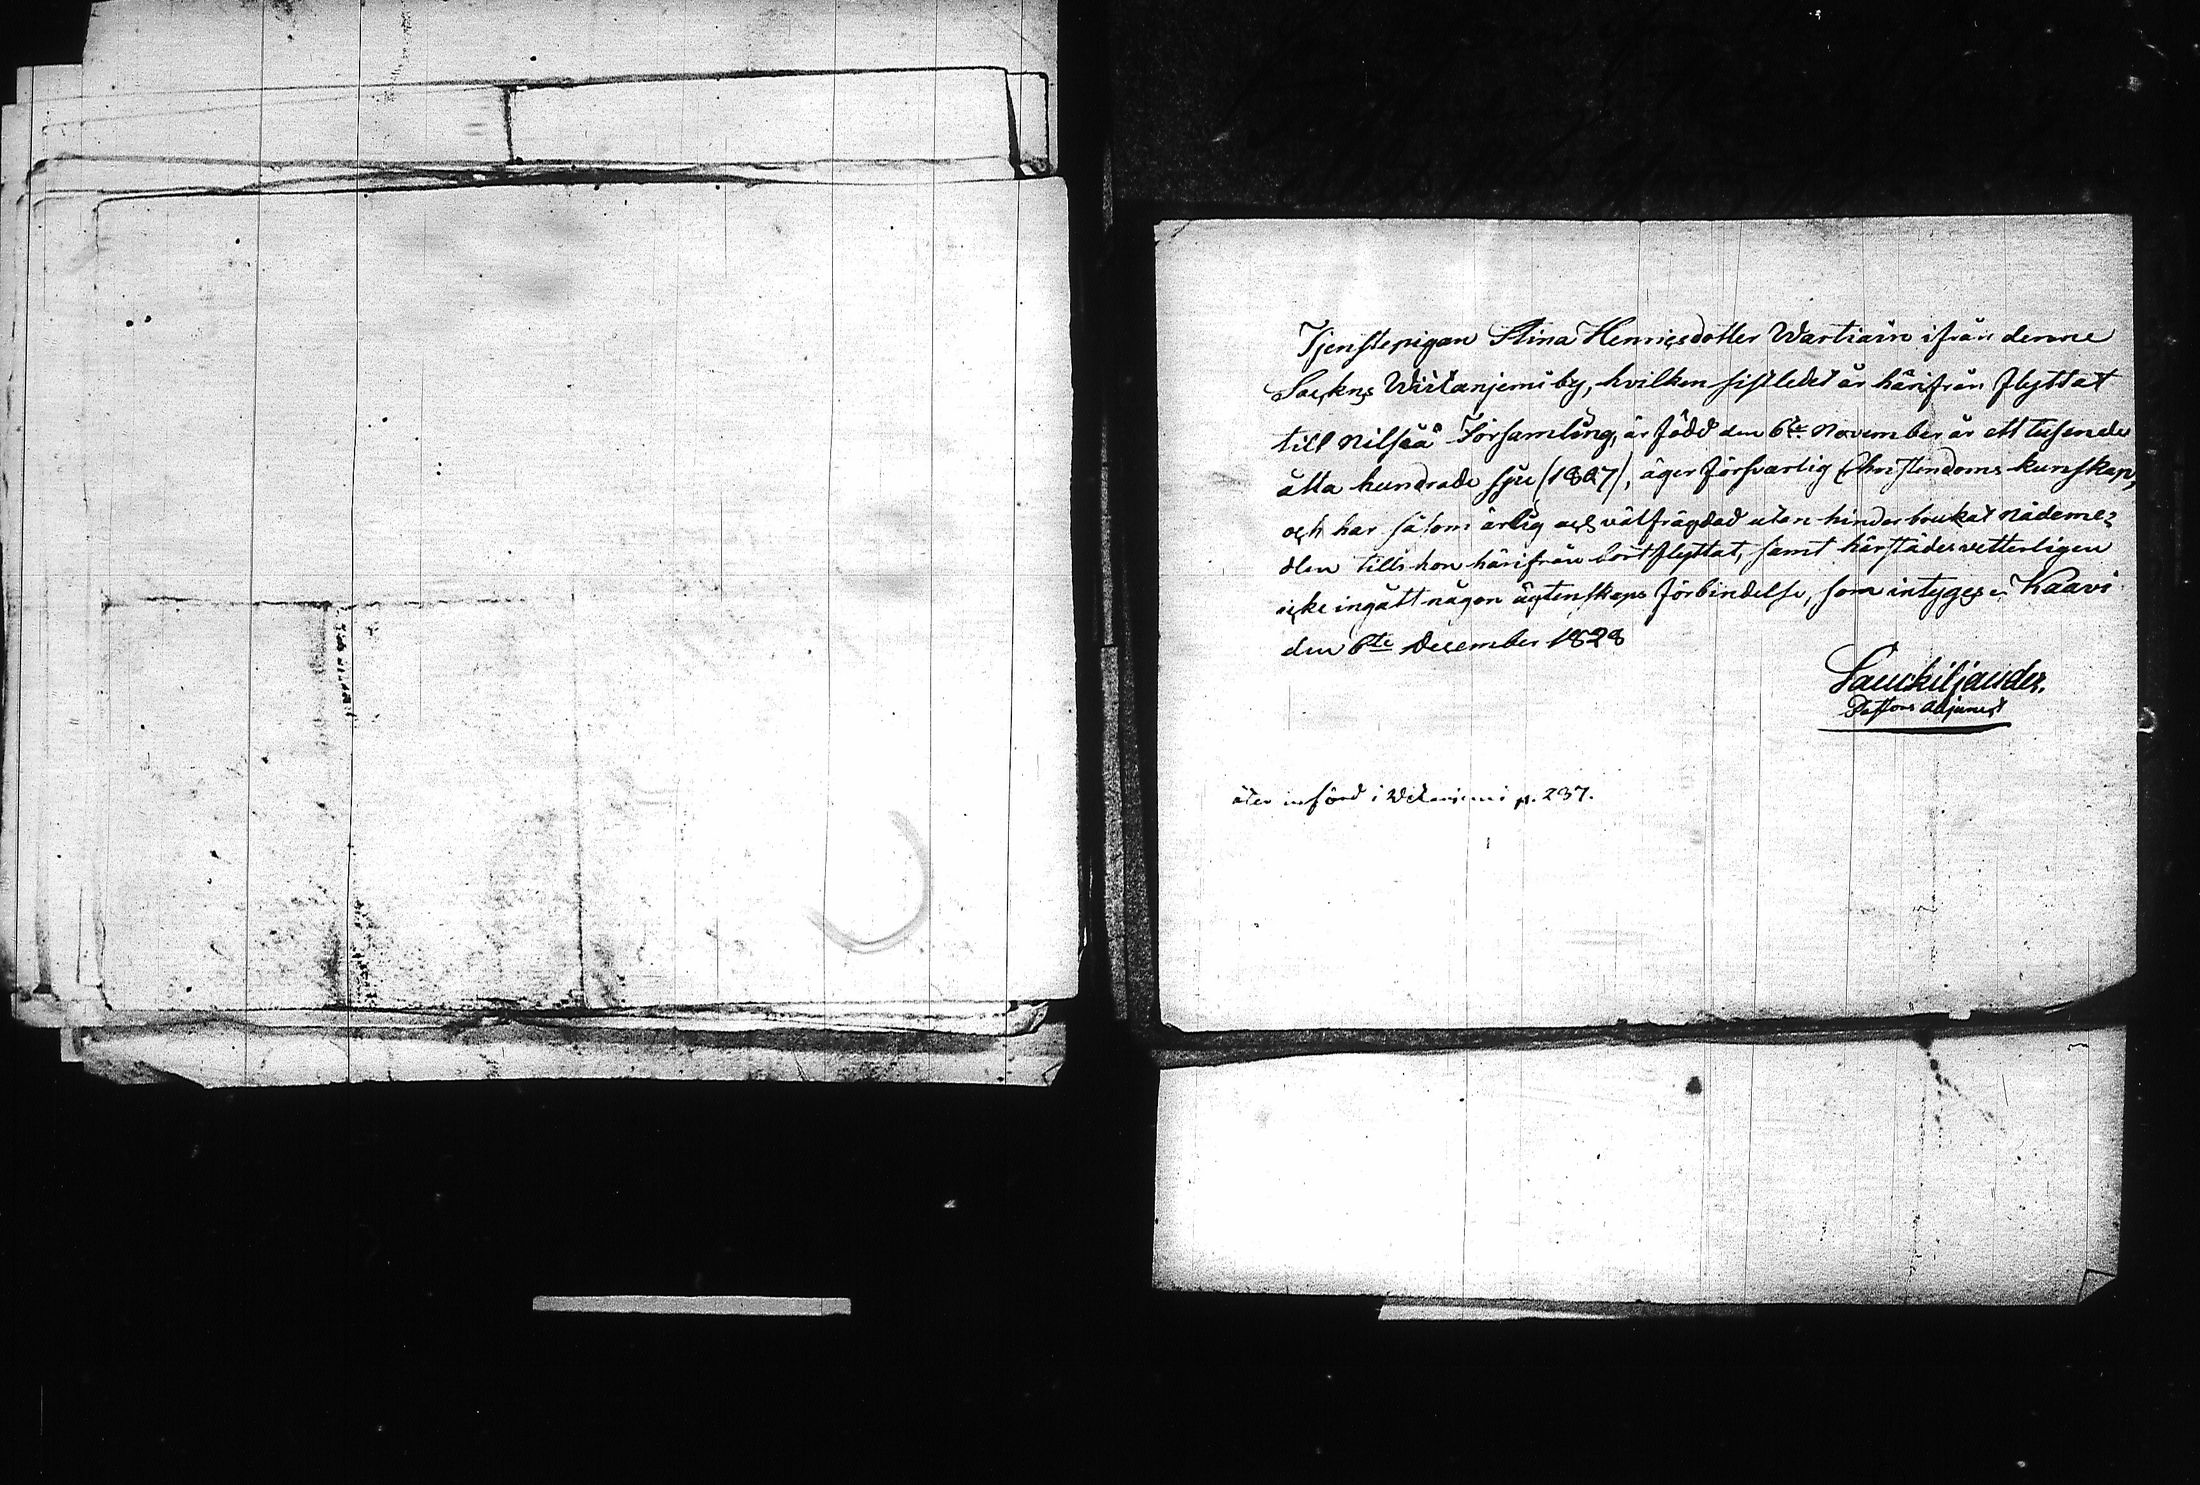 Tjenstepigan Stina Henricsdotter Wartiain ifrån denne
Sockns Wiitaniemi by, hvilken sistledet år härifrån flyttat
till Nilsiä Församling, är född den 6te November år ett tusende
åtta hundrade sju (1807), äger försvarlig Christendoms kunskap,
och har såsom ärlig och välfrägdad utan hinder brukat nådeme-
dlen tills hon härifrån bortflyttat, samt härstädes vetterligen
icke ingått någon ägtenskaps förbindelse, som intygas. Kaavi
den 6te December 1828
Pastors Adjunct
åter införd i Witaniemi p. 237.